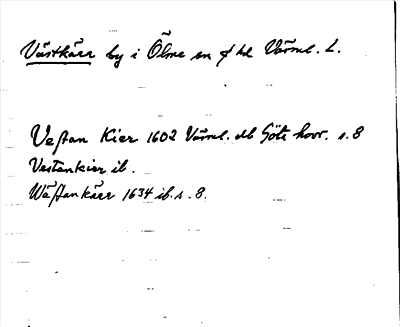 Västkärr by i Ölme sn o hd Värml. L.
Vestan Kier 1602 Värml. Göte hovr. s. 8
Vestankier ib.
Wästankärr 1634 ib. s. 8.